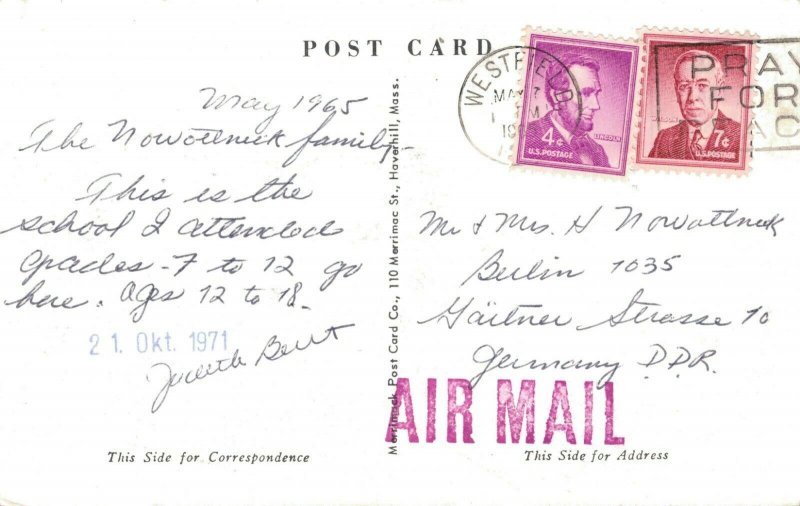 POST CARD
May 1965
The Nowottnick family-
This is the
school I attended
grades - 7 to 12 go
here. ages 12 to 18.
21. Okt. 1971
Judith
This Side for Correspondence
Merrimack Post Card Co., 110 Merrimac St., Haverhill, Mass.
WESTFIELD
MAY 7
M
19
4¢
LINCOLN
U.S. POSTAGE
WILSON
7¢
U.S. POSTAGE
PRAY
FOR
Mr & Mrs. H Nowottnick
Berlin 1035
Gärtner Strasse 10
Germany D.D.R.
AIR MAIL
This Side for Address